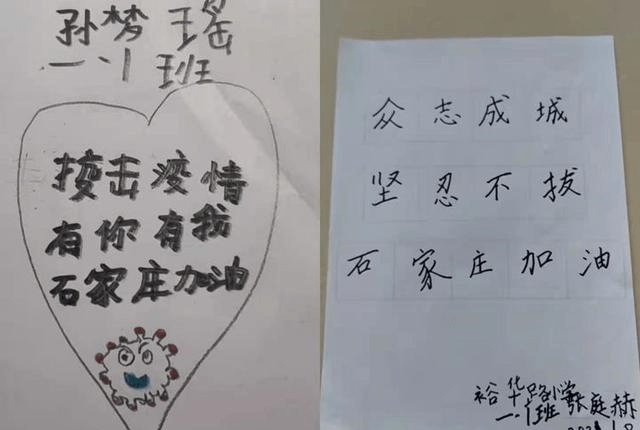 孙梦瑶
一·1班
击疫情
有你有我
石家庄加油
众志成城
坚忍不拔
石家庄加油
裕华路小学
一·1班张庭赫